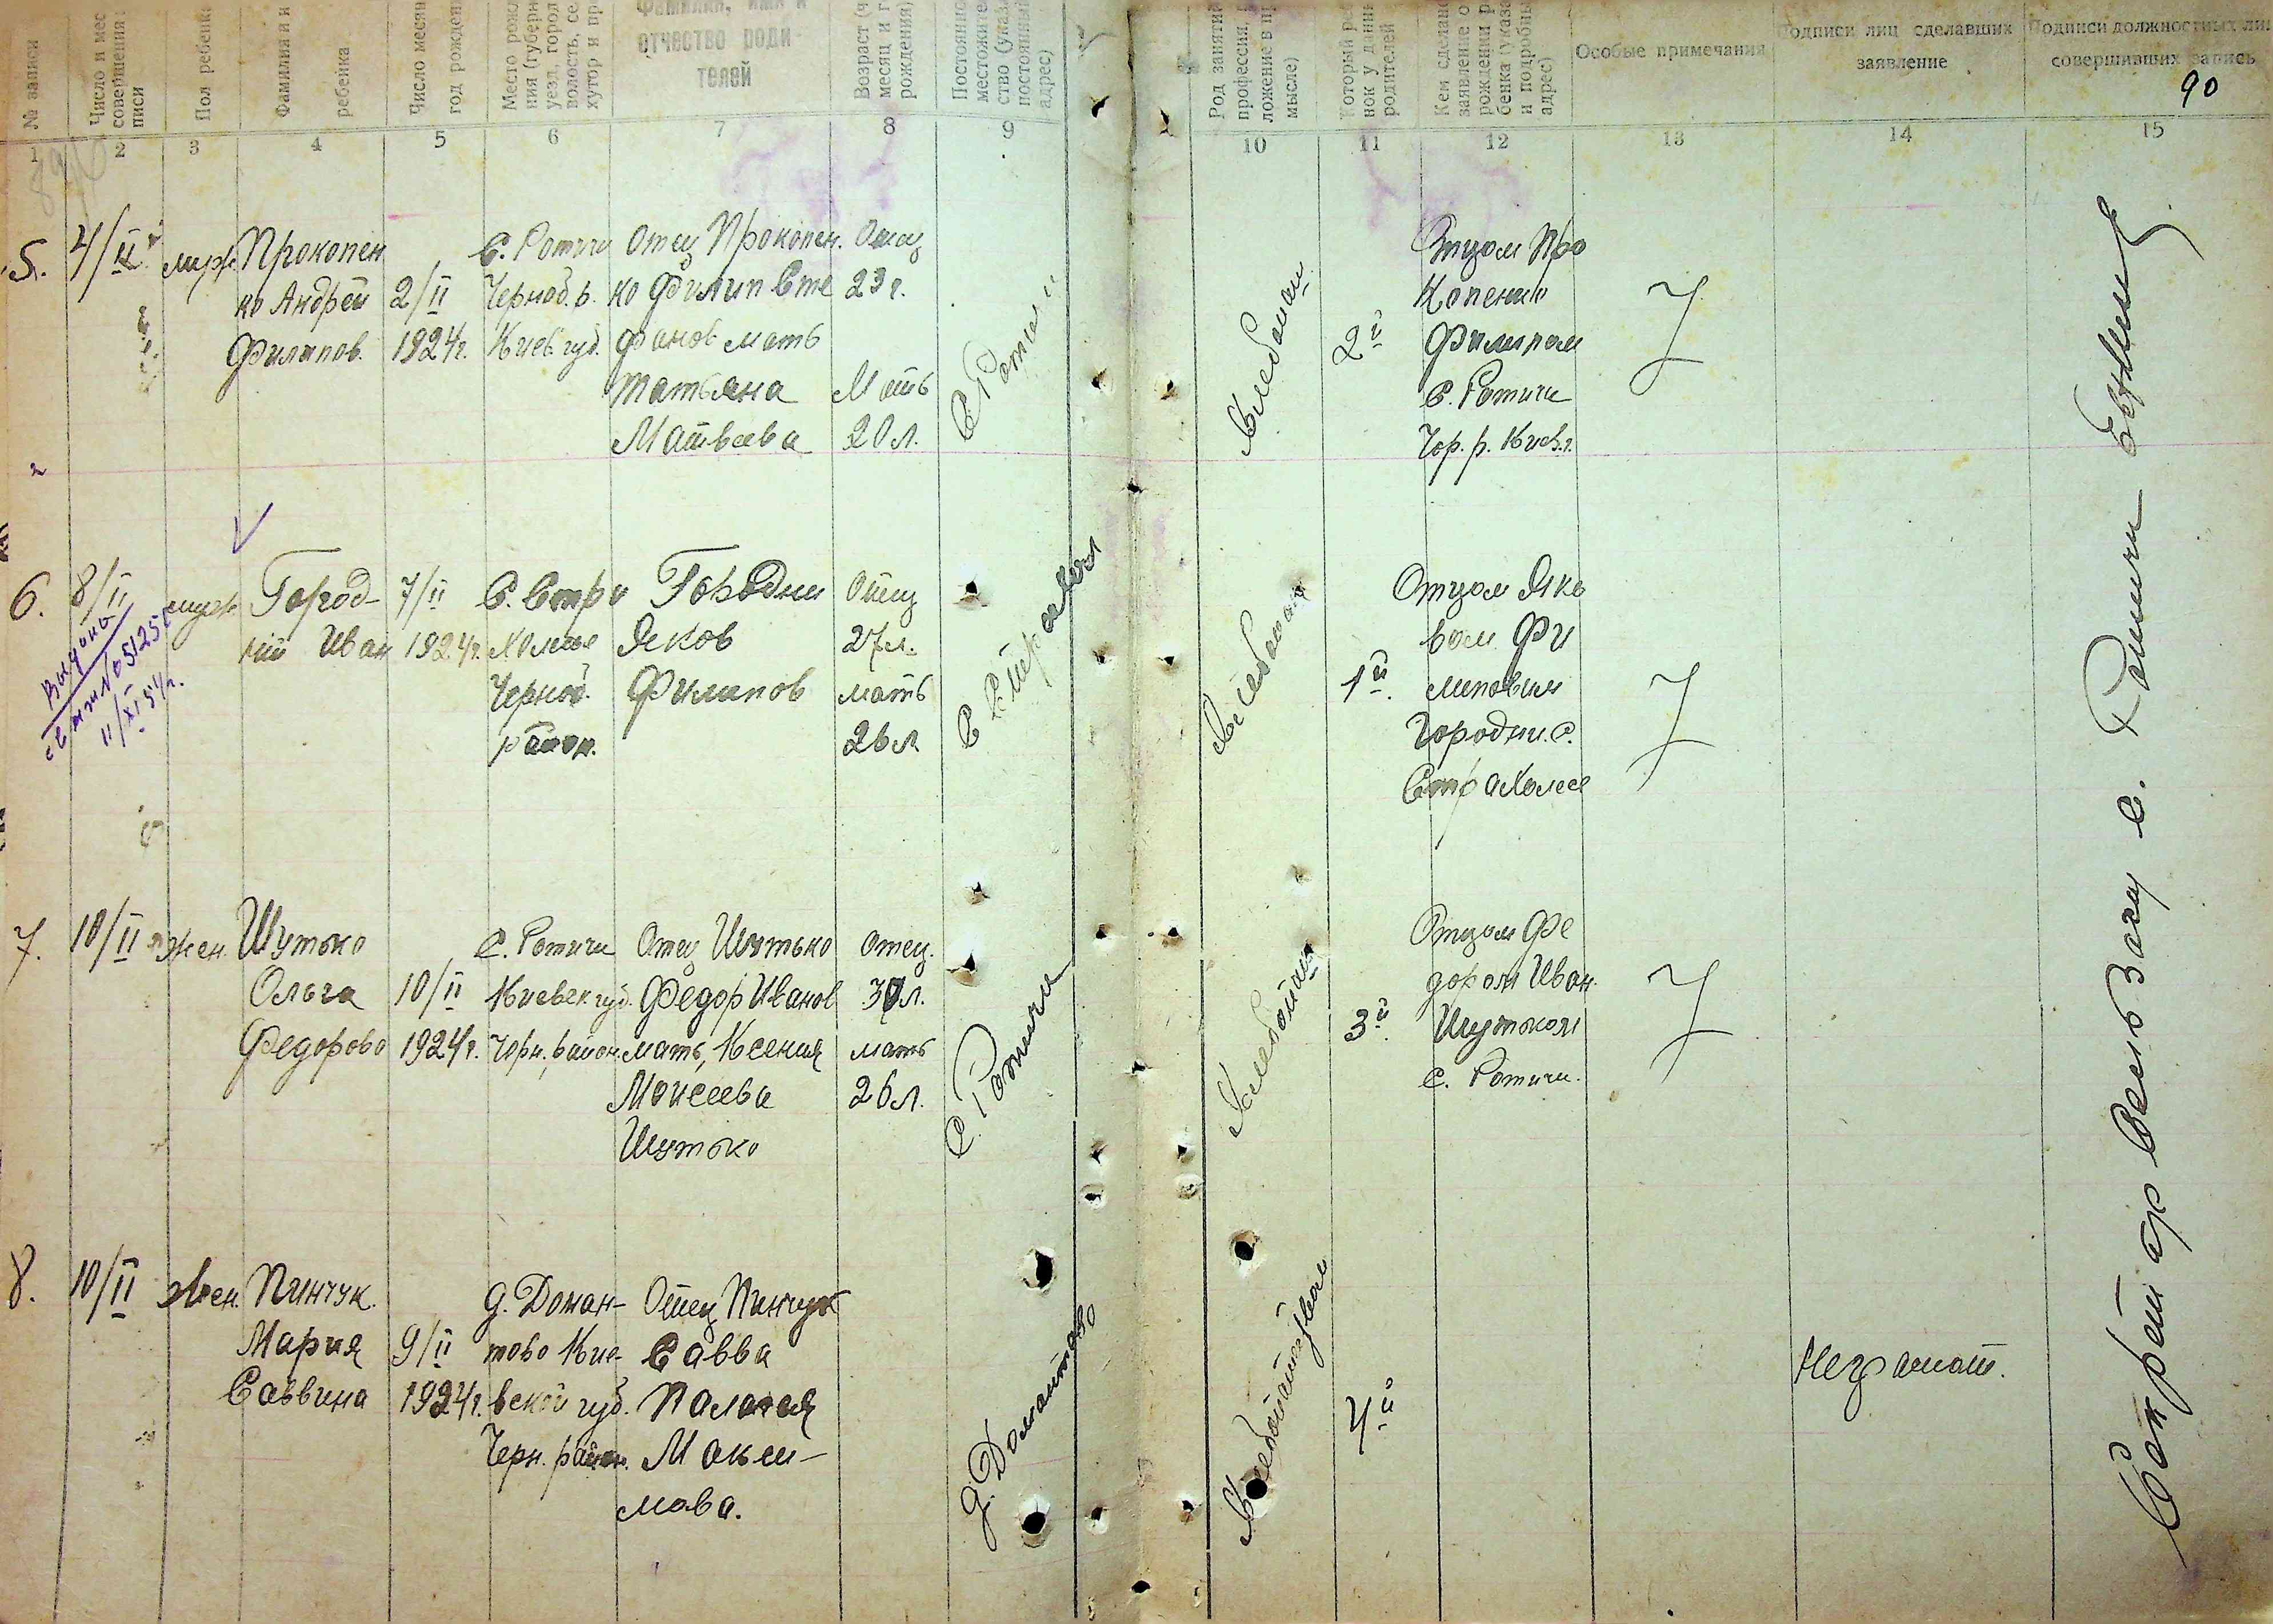 № записи
Число и мес
совершения
писи
Пол ребенк
Фамилия и
ребенка
Число меся
год рожден
Место рож
ния (губер
уезд, город
волость, се
хутор и пр
Фамилия, имя и
отчество роди
телей
Возраст (ч
месяц и г
рождения)
Постоянно
местожите
ство (указ
постоянный
адрес)
Род заняти
профессия,
ложение в п
мысле)
Который ре
нок у дан
родителей
Кем сделан
заявление о
рождении р
бенка (указа
и подробны
адрес)
Особые примечания
Подписи лиц сделавших
заявление
Подписи должностных ли
совершивших запись
90
1 2 3 4 5 6 7 8 9 10 11 12 13 14 15
5.
4/II
муж
Прокопен
ко Андрей
Филипов.
2/II
1924г.
С. Ротичи
Черноб. р.
Киев. губ.
Отец Прокопен.
ко Филип Сте
фанов мать
Татьяна
Матвеева
Отец
23 г.
Мать
20 л.
С Ротичи
Хлебопаш
2й
Отцом Про
копенко
Филипом
С. Ротичи
Чор. р. Киев.г.
6.
8/II
муж
Выдана
11/XI 54г.
Город-
ний Иван
7/II
1924г.
С. Стра
холесе
Черноб.
район.
Городни
Яков
Филипов
Отец
27л.
мать
26л
С Страхол
Хлебопаш
1й.
Отцом Яко
вом Фи
липовим
Городни. С.
Страхолесе
7.
10/II
жен.
Шутько
Ольга
Федорово
10/II
1924г.
С. Ротичи
Киевск губ.
Чорн. район.
Отец Шутько
Федор Иванов
мать, Ксения
Моисеева
Шутько
отец.
30л.
мать
26л.
С. Ротичи
Хлебопаш
3й.
Отцом Фе
дором Иван.
Шутьком
с. Ротичи.
8.
10/II
жен.
Пинчук.
Мария
Саввина
9/II
1924г.
д. Доман-
тово Кие-
вской губ.
Черн. район.
Отец Пинчук
Савва
Палагея
Макси-
мова.
д. Домантово
4й
Неграмот.
Секретар Сельзагу с. Ротичи